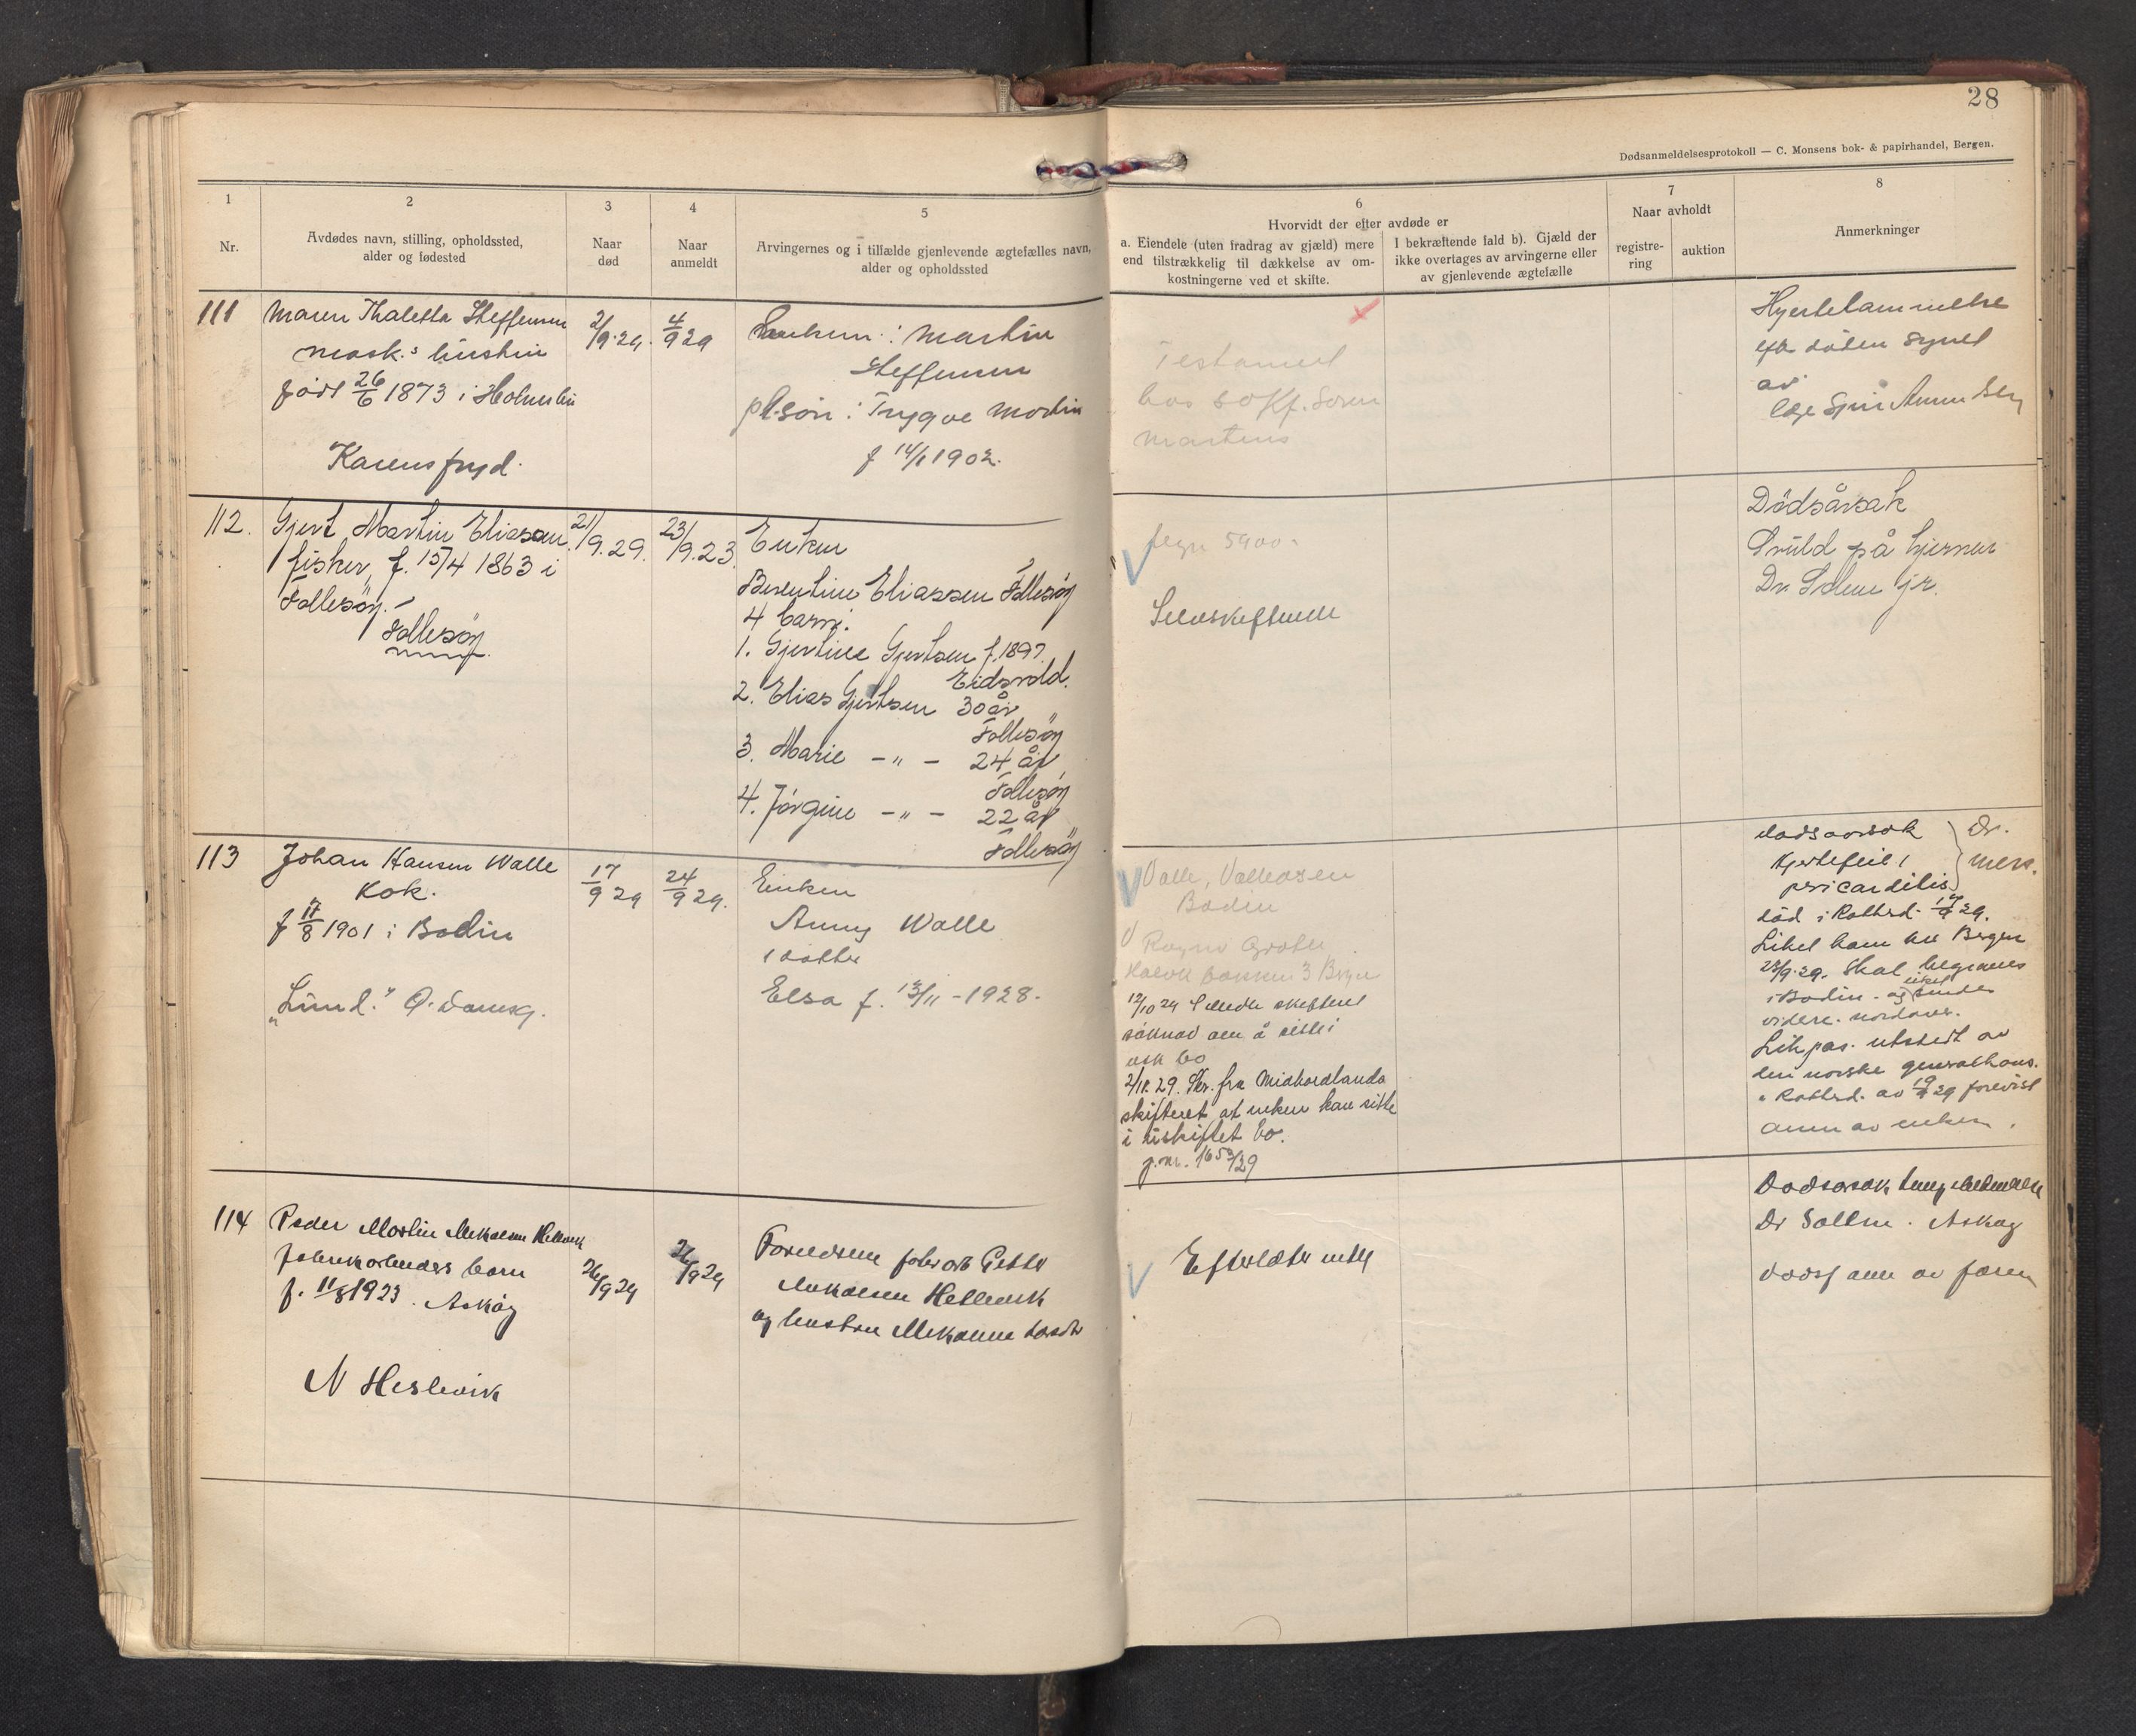 28
Dødsanmeldelsesprotokoll — C. Monsens bok- & papirhandel, Bergen.
1
Nr.
2
Avdødes navn, stilling, opholdssted,
alder og fødested
3
Naar
død
4
Naar
anmeldt
5
Arvingernes og i tilfælde gjenlevende ægtefælles navn,
alder og opholdssted
6
Hvorvidt der efter avdøde er
a. Eiendele (uten fradrag av gjæld) mere
end tilstrækkelig til dækkelse av om-
kostningerne ved et skifte.
I bekræftende fald b). Gjæld der
ikke overtages av arvingerne eller
av gjenlevende ægtefælle
7
Naar avholdt
registre-
ring
auktion
8
Anmerkninger
111
Maren Thaletta Steffensen
mask.s hustru
født 26/6 1873 i
Karensfryd.
2/9.29.
4/9 29
Martin
Steffensen
pl.søn: Trygve Martin
f 14/1 1902.
Testament
hos
Martens
Hjertelammelse
efter døden synet
av
112.
Gjert Martin Eliassen
fisker, f. 15/4 1863 i
Follesøy.
Follesøy
21/9.29.
23/9.23.
Enken
Berentine Eliassen Follesøy
4 barn.
1. Gjertine Gjertsen f. 1897
Eidsvold.
2. Elias Gjertsen 30 år
Follesøy
3. Marie - " - 24 år
Follesøy
4. Jørgine - " - 22 år
Follesøy
5900.-
Selvskiftende
Dødsårsak
Svuld på hjernen
Dr. jr.
113
Johan Hansen Walle
Kok.
f 17/8 1901 i Bodin
17/9 29
24/9 29.
Enken
Anny Walle
1 datter
Elsa f. 13/11 - 1928.
Valle, Valleosen
Bodin
3 Bergen
12/10 29 skifteret
søknad om å sitte i
usk bo
2/11.29. Skr. fra Midhordlands
skifteret at enken kan sitte
i uskiftet bo.
j.nr. 1653/29
dødsaarsak
hjertefeil,
pericarditis
Dr.
død i Rotterd. 17/9 29.
Liket kom til Bergen
23/9.29. Skal begraves
i Bodin - og sendes
videre nordover.
Likpas utstedt av
den norske generalkons.
i Rotterd. av 19/9 29 forevist
anm av enken.
114
Peder Martin Mikalsen Hetlevik
fabrikarbeiders barn
f. 11/8 1923. Askøy
N Hetlevik
26/9 29
Forældrene
Mikalsen Hetlevik
og hustru
Efterlater intet
Dr . Askøy
dødsf anm av faren